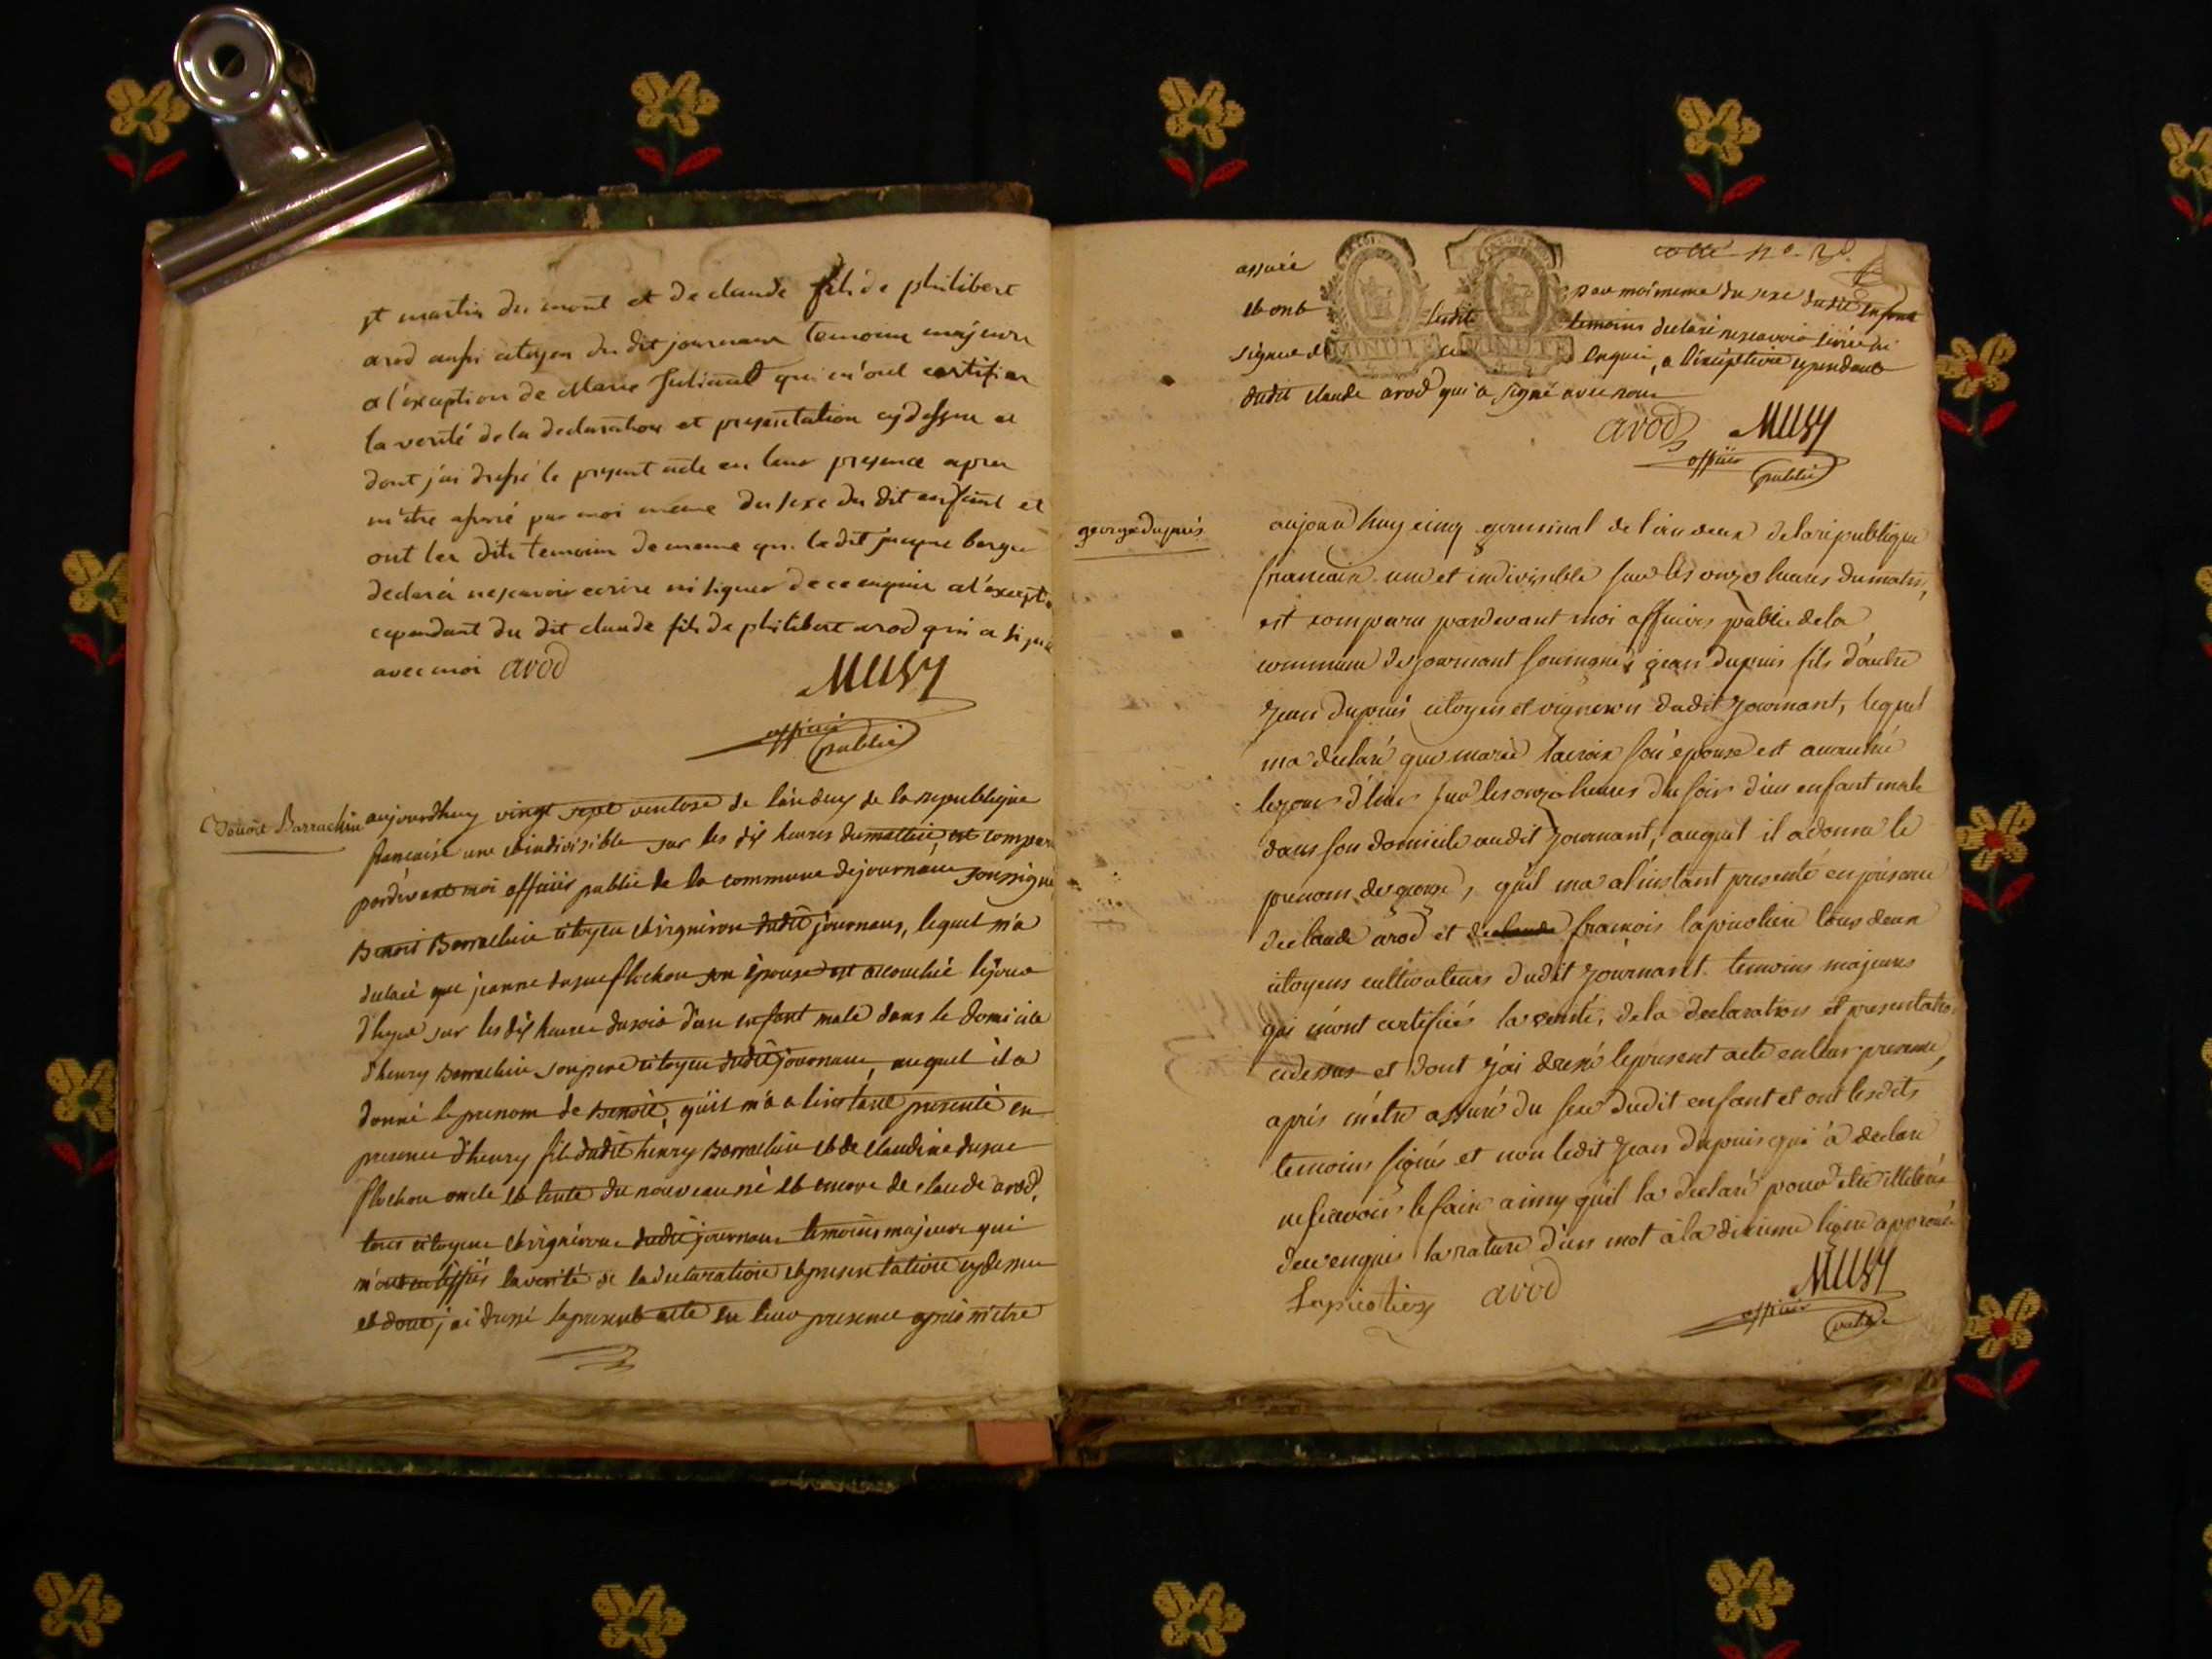 st martin du mont et de claude fils de philibert
arod aussi citoyen du dit journans temoins majeurs
a l'exception de Marie Juliand qui m'ont certifier
la verité de la declaration et presentation cydessus et
dont j'ai dressé le present acte en leur presence apres
m'etre assuré par moi meme du sexe du dit enfant et
ont les dits temoins de meme que le dit jacque berger
declaré ne scavoir ecrire ni signer de ce enquis a l'except
cependant du dit claude fils de philibert arod qui a signé
avec moi arod
Musy
officier
public
Benoit Barrachin
aujourdhuy vingt sept ventose de l'an deux de la republique
française une et indivisible sur les dix heures du mattin, est comparu
pardevant moi officier public de la commune de journans soussigné
Benoit Barrachin citoyen et vigneron dudit journans, lequel m'a
declaré que jeanne flochon son épouse est accouchée le jour
d'hyer sur les dix heures du soir d'un enfant male dans le domicile
d'henry Barrachin son pere citoyen dudit journans, auquel il a
donné le prenom de benoit, qu'il m'a a l'instant presenté en
presence d'henry fils dudit henry Barrachin et de claudine
flochon oncle et tente du nouveau né et encore de claude arod,
tous citoyens et vignerons dudit journans temoins majeurs qui
m'ont certiffiés la verité de la declaration et presentation cydessus
et dont j'ai dressé le present acte en leur presence après m'etre
cotté n°
assuré par moi meme du sexe dudit enfant
et ont lesdits temoins declaré ne scavoir écrire ni
signer de ce enquis, a l'exception cependant
dudit claude arod qui a signé avec nous
MINUTE MINUTE
arod Musy
officier
public
george dupuis
aujourd'huy cinq germinal de l'an deux de la republique
francaise une et indivisible sur les onze heures du matin,
est comparu pardevant moi officier public de la
commune de journant soussigné jean dupuis fils d'autre
jean dupuis citoyen et vigneron dudit journant, lequel
ma declaré que marie lacroix son épouse est accouché
le jour d'hier sur les onze heures du soir d'un enfant male
dans son domicile audit journant, auquel il a donné le
prenom de george, qu'il ma a l'instant presenté en presence
de claude arod et de claude francois lapicotiere tous deux
citoyens cultivateurs dudit journant temoins majeurs
qui m'ont certifiés la verité, de la declaration et presentation
cidessus et dont j'ai dressé le present acte en leur presence,
après m'etre assuré du sexe dudit enfant et ont lesdits
temoins signés et non ledit jean dupuis qui a declaré
ne scavoir le faire ainsy qu'il la declaré pour etre illiteré
de ce enquis la rature d'un mot à la dixieme ligne approuvée
Lapicotiere arod Musy
officier
public